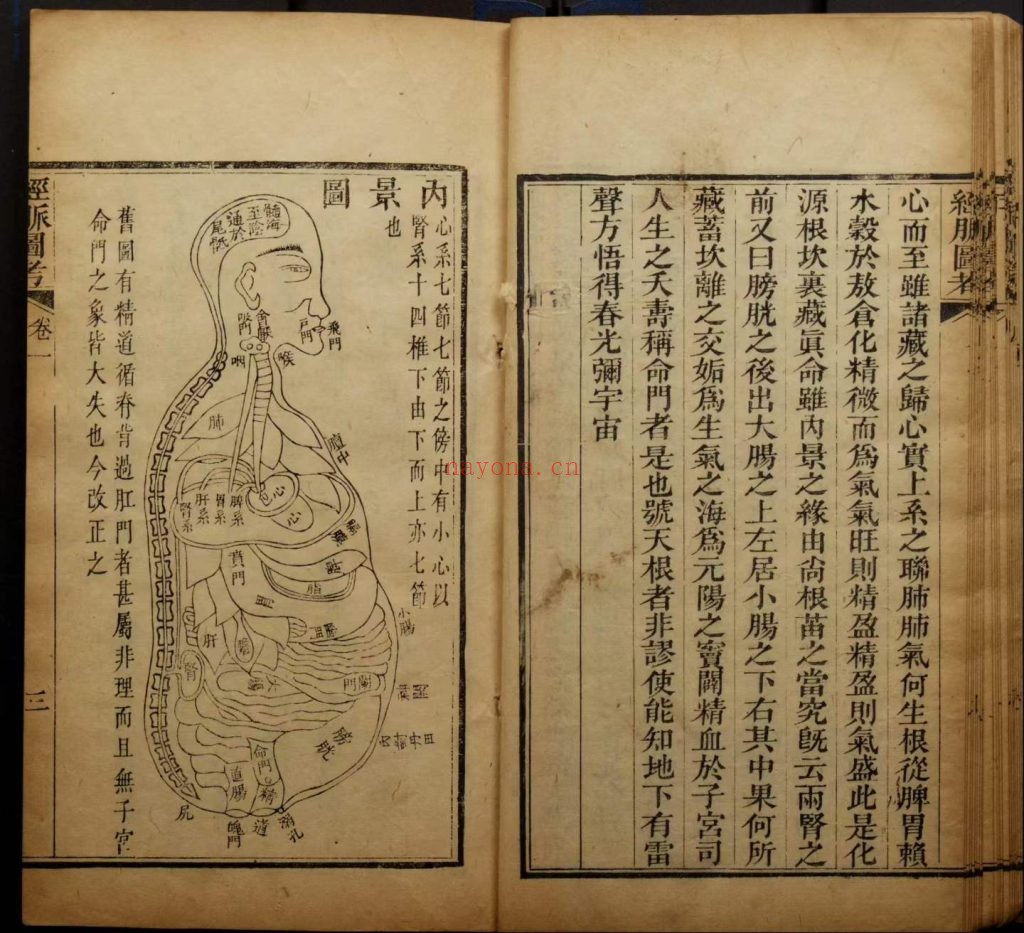 經脈圖考
心而至雖諸藏之歸心實上系之聯肺肺氣何生根從脾胃賴
水穀於敖倉化精微而爲氣氣旺則精盈精盈則氣盛此是化
源根坎裏藏眞命雖內景之緣由尙根苗之當究旣云兩腎之
前又曰膀胱之後出大腸之上左居小腸之下右其中果何所
藏蓄坎離之交姤爲生氣之海爲元陽之竇闢精血於子宮司
人生之夭壽稱命門者是也號天根者非謬使能知地下有雷
聲方悟得春光彌宇宙
內景圖
心系七節七節之傍中有小心以
腎系十四椎下由下而上亦七節
也
髓海
至陰
通於
尾骶
飛門
戶門
會厭
吸門
喉
咽
肺
膻中
心
心
脾系
胃系
肝系
腎系
膈膜
賁門
胃
脂
肝
膽
幽門
小腸
腎
大腸
闌門
膀胱
命門
直腸
精
道
溺孔
魄門
尻
舊圖有精道循脊背過肛門者甚屬非理而且無子宮
命門之象皆大失也今改正之
經脈圖考
卷一
三
nayona.cn